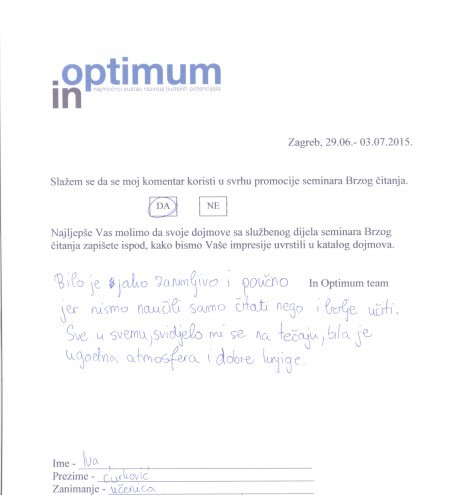 in optimum
najmoćniji sustav razvoja ljudskih potencijala
Zagreb, 29.06.- 03.07.2015.
Slažem se da se moj komentar koristi u svrhu promocije seminara Brzog čitanja.
DA NE
Najljepše Vas molimo da svoje dojmove sa službenog dijela seminara Brzog
čitanja zapišete ispod, kako bismo Vaše impresije uvrstili u katalog dojmova.
Bilo je jako zanimljivo i poučno In Optimum team
jer nismo naučili samo čitati nego i bolje učiti.
Sve u svemu, svidjelo mi se na tečaju, bila je
ugodna atmosfera i dobre knjige.
Ime - Iva
Prezime - Ćurković
Zanimanje - učenica